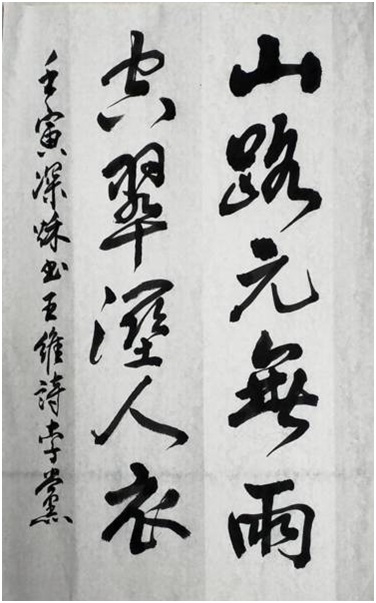 山路元無雨
空翠濕人衣
壬寅深秋書王維詩李黨